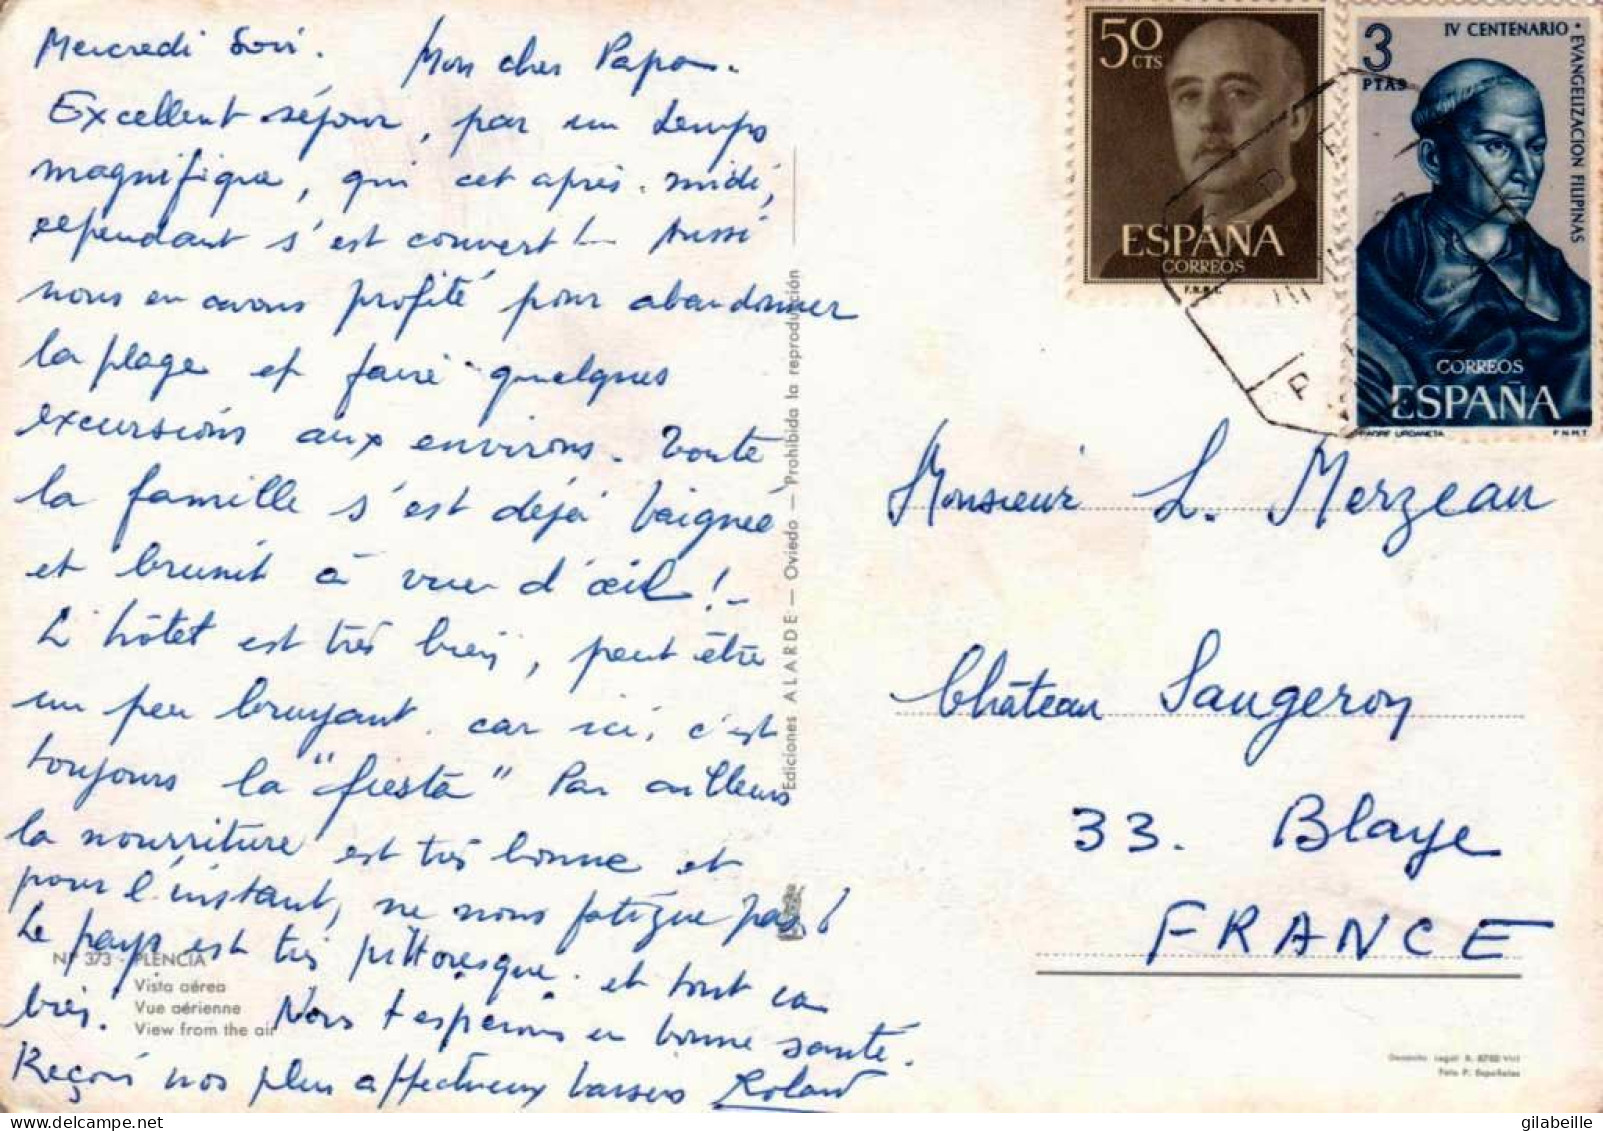 Mercredi Soir. Mon cher Papa.
Excellent séjour, par un temps
magnifique, qui cet après-midi,
cependant s'est couvert! Aussi
nous en avons profité pour abandonner
la plage et faire quelques
excursions aux environs. Toute
la famille s'est déjà baignée
et brunit à vue d'œil !
L'hôtel est très bien, peut être
un peu bruyant, car ici, c'est
toujours la "fiesta" Par ailleurs
la nourriture est très bonne et
pour l'instant, ne nous fatigue pas !
Le pays est très pittoresque et tout va
bien. Nous t'espérons en bonne santé.
Reçois nos plus affectueux baisers Roland
Nº 373 - PLENCIA
Vista aérea
Vue aérienne
View from the air
Ediciones ALARDE — Oviedo — Prohibida la reproducción
50
CTS
ESPAÑA
CORREOS
F.N.M.T.
3
PTAS
IV CENTENARIO • EVANGELIZACION FILIPINAS
CORREOS
ESPAÑA
PADRE URDANETA F.N.M.T.
Monsieur L. Merzeau
Château Saugeron
33. Blaye
FRANCE
Deposito Legal B. 8702-VIII
Foto P. Españolas
gilabeille